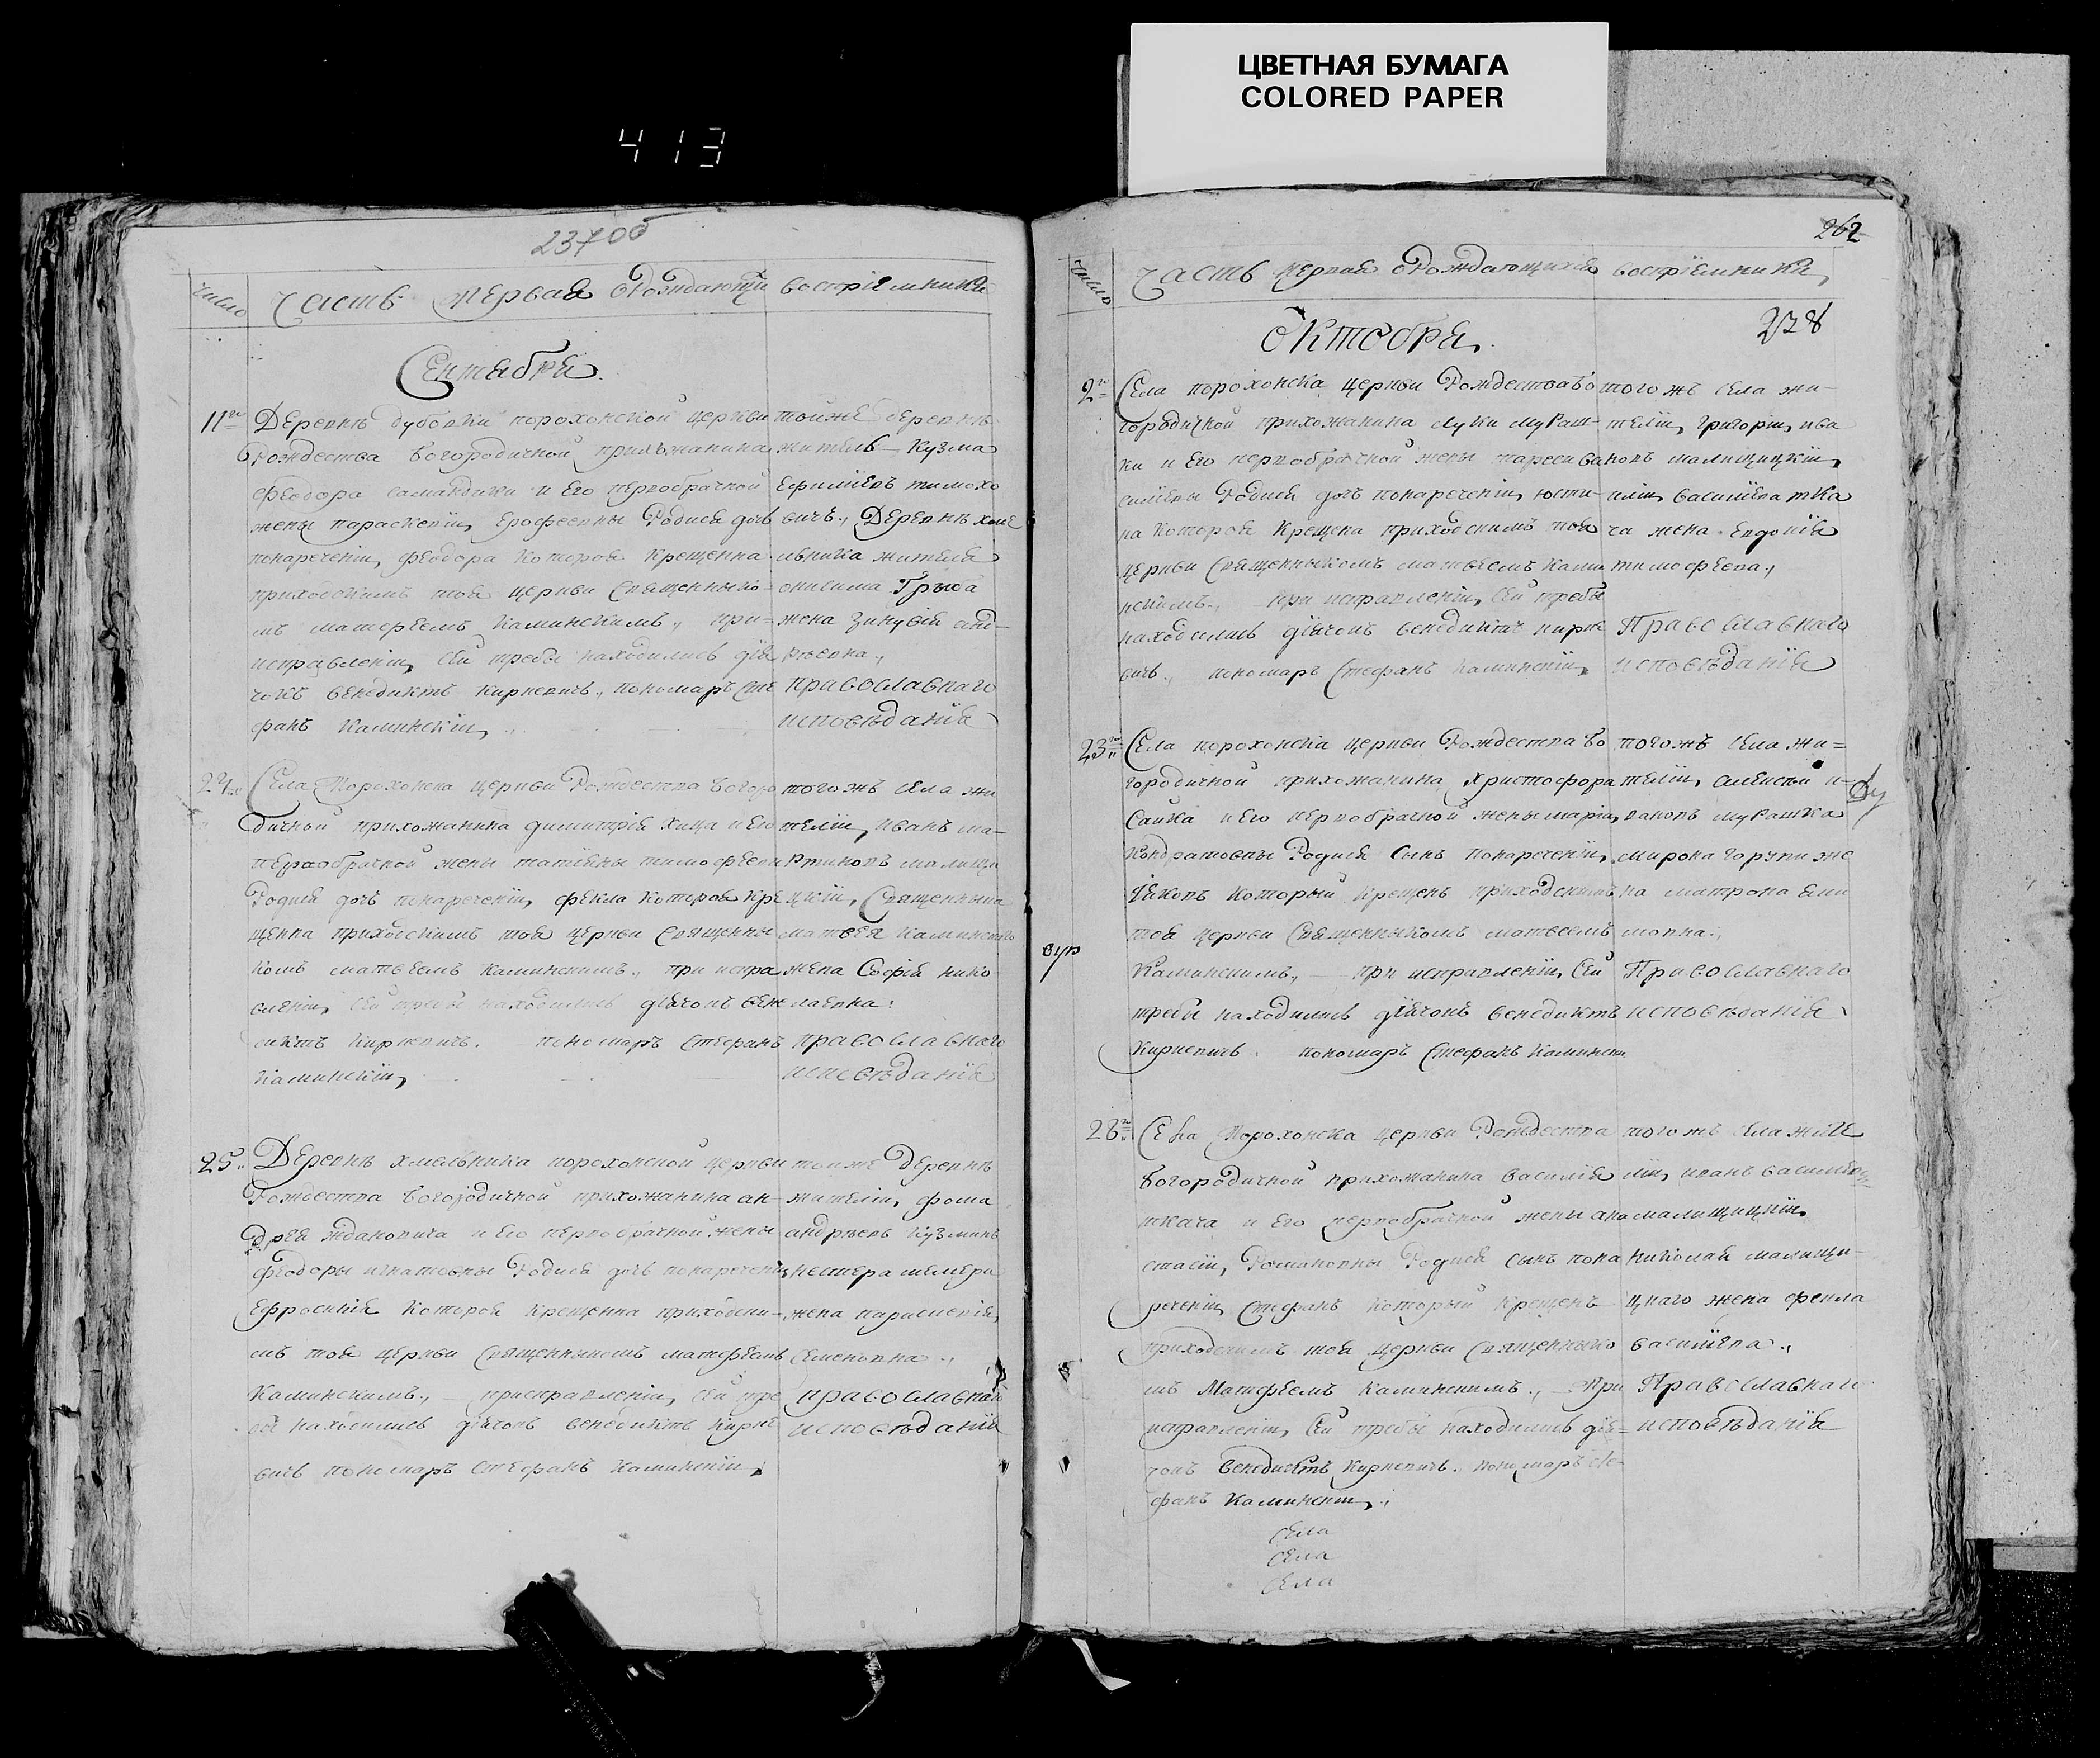 ЦВЕТНАЯ БУМАГА
COLORED PAPER
413
237об
число
Часть первая о Рождающи
воспріемники
Сентабря.
11го
Деревнѣ дубовки порохонской церкви
Рождества богородичной прихожанина
феодора самандыки и Его первобрачной
жены параскевіи Ерофеевны Родися дочь
понареченіи феодора Которая Крещенна
приходскимъ тоя церкви Священныко-
мъ матфеемъ Каминскимъ., при-
исправленіи Сей требы находились дїя
чокъ венедиктъ кирневичъ., пономаръ сте
фанъ Каминскіи,
тойже деревнѣ
житель Кузма
Ефимїевъ тимохо
вичъ., Деревнѣ хоме
льника жителя
онисима
жена зиновія анд-
рѣевна.,
православнаго
исповѣданія
24
Села Порохонска церкви Рождества богоро
дичной прихожанина димитрія хица и Его
первобрачной жены татїяны тимофеевн
Родися дочь понареченіи фекла Которая Кре
щенна приходскимъ тоя церкви Священны
комъ матвеемъ Каминскимъ., при испра
вленіи Сей требы находились дїячокъ вене
диктъ Кирневичъ. пономаръ Стефанъ
Каминскіи,
того жъ села жи
теліи, иванъ ма-
ртиновъ малищи
цкіи, Священныка
матвея Каминского
жена Софїя нико
лаевна:
православнаго
исповѣданія
25
Деревнѣ хмельника порохонской церкви
Рождества богородичной прихожанина ан-
дрея ждановича и Его первобрачной жены
феодоры игнатовны Родися дочь понареченіи
Ефросинїя Которая Крещенна приходски-
мъ тоя церкви Священныкомъ матфеемъ
Каминскимъ., при исправленіи Сей тре
бы находились дїячокъ венедиктъ Кирне
вичъ пономаръ Стефанъ Каминскіи,
тойже деревнѣ
жителіи, фома
андрѣевъ Кузминъ
нестера
жена параскевія
Семеновна.,
православнай
исповѣданія
262
число
Часть первая о Рождающихся
воспріемники,
Октобря.
238
2го
Села порохонска церкви Рождества бо
городичной прихожанина луки мукаш-
ки и Его первобрачной жены параскевы ва
силїевы Родися дочь понареченіи, юсти-
на Которая Крещена приходскимъ тоя
церкви Священныкомъ матвеемъ Ками
нскимъ., при исправленіи, Сей требы
находились дїячокъ венедиктъ кирне
вичъ., пономаръ Стефанъ Каминскіи,
того жъ села жи-
теліи, григоріи, ива
новъ малищицкіи,
василїева тка
ча жена Евдокія
тимофеева.,
Православнаго
исповѣданія
23го
Села порохонска церкви Рождества бо
городичной прихожанина христофора
Сачка и Его первобрачной жены маріи,
Кондратовны Родися Сынъ понареченіи,
їяковъ Который Крещенъ приходскимъ
тоя церкви Священныкомъ матвеемъ
Каминскимъ., при исправленіи, Сей
требы находились дїячокъ венедиктъ
Кирневичъ. пономаръ Стефанъ Каминскіи
того жъ села жи=
теліи, алексѣй и-
вановъ мукашка
мирона же
на матрона
мовна.,
Православнаго
исповѣданія
28го
Села Порохонска церкви Рождества
богородичной прихожанина василїя
ткача и Его первобрачной жены ана
стасіи, Романовны Родися сынъ пона
реченіи Стефанъ Который Крещенъ
приходскимъ тоя церкви Священныко
мъ Матфеемъ Каминскимъ., При
исправленіи, Сей требы находились дїя=
чокъ венедиктъ Кирневичъ. пономаръ сте
фанъ Каминскіи.,
того жъ села жите
ліи, иванъ василїе
малищицкіи,
николая малищи-
цкаго жена фекла
василїева.,
Православнаго
исповѣданія
села
села
села